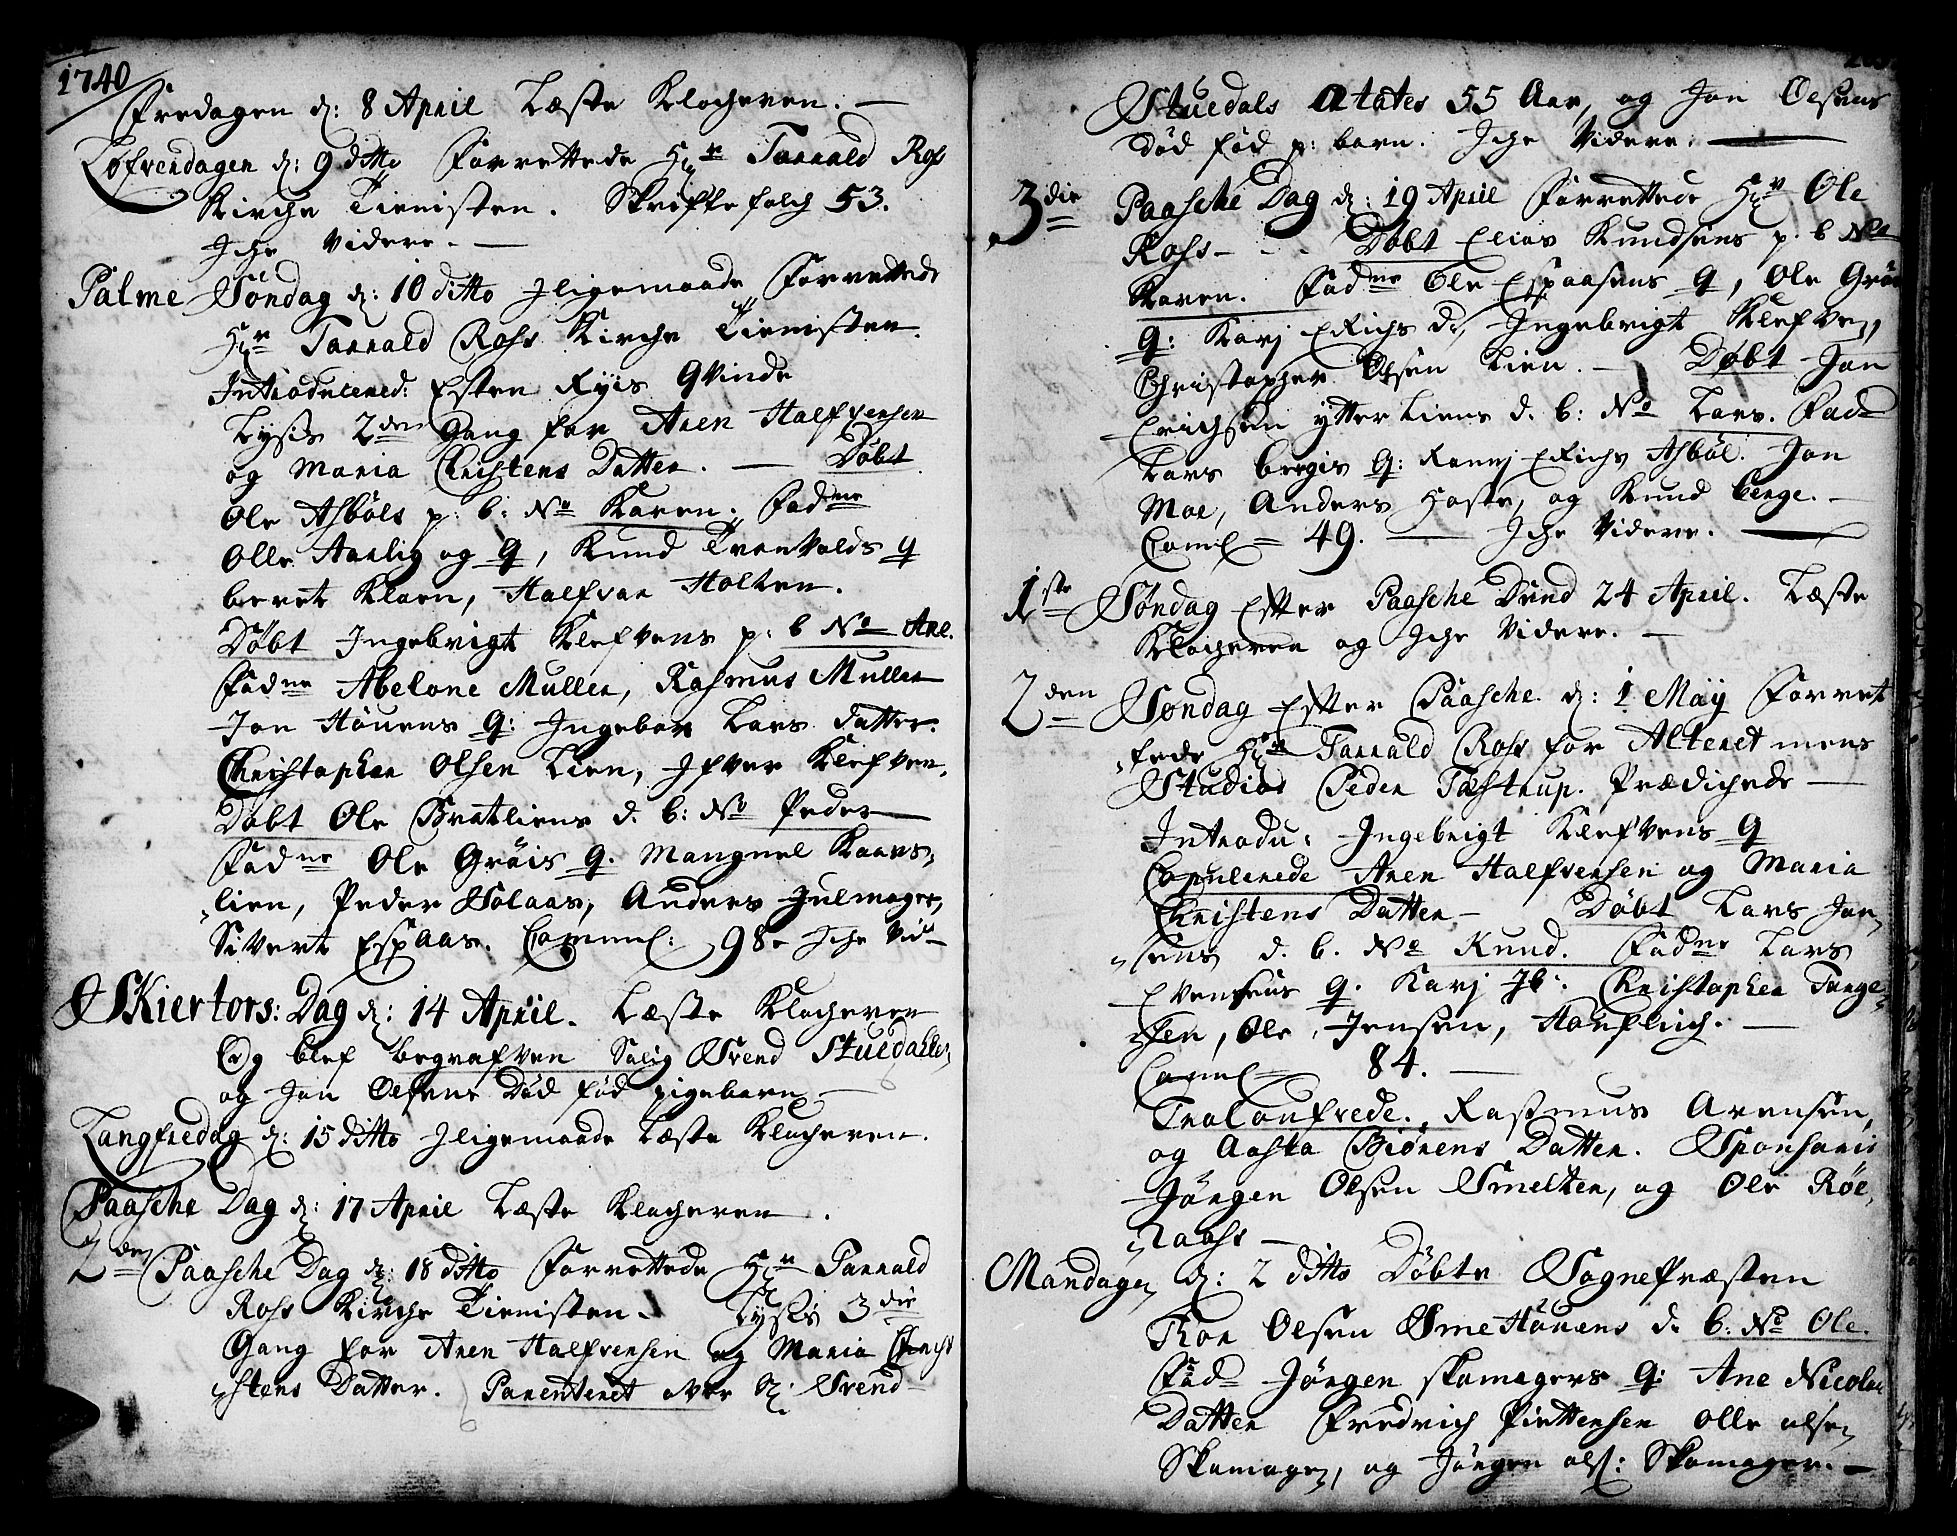 1740
Fredagen d: 8 April Læste Klocheren. —
Løfverdagen d: 9 ditto Forrettede Hr Tarrald Ross
Kirche Tienisten. Skriftefolch 53.
Iche Videre. —
Palme Søndag d: 10 ditto Jligemaade Forrettede
Hr Tarrald Ross Kirche Tienisten
Introducered: Esten Ryis Qvinde
Lyst 2den Gang for Aren Halfvensen
og Maria Christens Datter. — Døbt
Ole Asbøls p: b: No Karen. Fadne
Olle Aarlig og Q, Knud Trønvolds Q
beret Kloen, Halfvor Holten.
Døbt Ingebrigt Klefvens p: b No Ane.
Fadne Abelone Muller, Rasmus Muller
Jon Høuens Q: Ingebor Lars datter.
Christopher Olsen Lien, Ifver Klefven,
Døbt Ole Bratliens d. b: No Peder
Fadne Ole Grøis Q. Mangnel Kaars-
lien, Peder Solaas, Anders Hulmager,
Sivert Espaas. Comul: 98. Iche Vid-
Skiertors: Dag d: 14 April. Læste Klocheren
Og blef begrafven Salig Svend Stuedahls,
og Jon Olsens Død fød pigebarn —
Langfredag d: 15 ditto Jligemaade Læste Klocheren.
Paasche Dag d: 17 April Læste Klocheren.
2den Paasche Dag d: 18 ditto Forrettede Hr Tarrald
Ross Kirche Tienisten. Lyst 3die
Gang for Aren Halfvensen og Maria Chri-
stens Datter. Parenteret over S: Svend
Stuedals Ætates 55 Aar, og Jon Olsens
død fød p: barn. Iche Videre. —
3die Paasche Dag d: 19 April Forrettede Hr Ole
Ross - - Døbt Elias Knudsens p. b No
Karen. Fadne Ole Espaasens Q, Ole Grøis
Q: Karj Erichs d, Ingebrigt Klefven,
Christopher Olsen Lien. — Døbt Jon
Erichsen ytter Liens d. b: No Lars. Fad
Lars bergis Q: Ranj Erichs Asbøl. Jon
Moe, Anders Haste, og Knud Enge. —
Comul 49. — Iche Videre. —
1ste Søndag Efter Paasche Dend 24 April. Læste
Klocheren og Iche Videre. —
2den Søndag Efter Paasche d: 1 May Forret
tede Hr Tarrald Ross for Alteret mens
Studios Peder Tostrup. Prædichede —
Introdu: Ingebrigt Klefvens Q
Copulerede Aren Halfvensen og Maria
Christens Datter — Døbt Lars Jon
sens d. b. No Knud. Fadne Lars
Evensens Q. Karj Ib: Christopher Tange
sen, Ole Jensen, Houflich. —
Comul 84. —
Troloufrede. Rasmus Arensen,
og Aasta Biørens Datter. Sponsoris
Jørgen Olsen Smelter, og Ole Røe
raass —
Mandagen d: 2 ditto Døbte Sognepræsten
Roe Olsen Smehouens d. b: No Ole.
Fad Jørgen skomagers Q: Ane Nicolai
Datter Fredrich Pettersen Olle olsen
Skomager, og Jørgen ols: Skomager. —